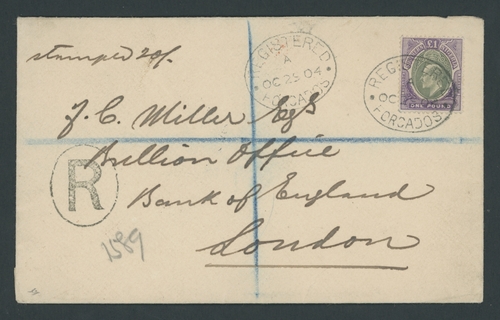 stamped 20/-
REGISTERED
A
OC 25 04
FORCADOS
£1
ONE POUND
REGIS
OC
FORCADOS
J. C. Miller Esq
Bullion Office
R
Bank of England
1589
London